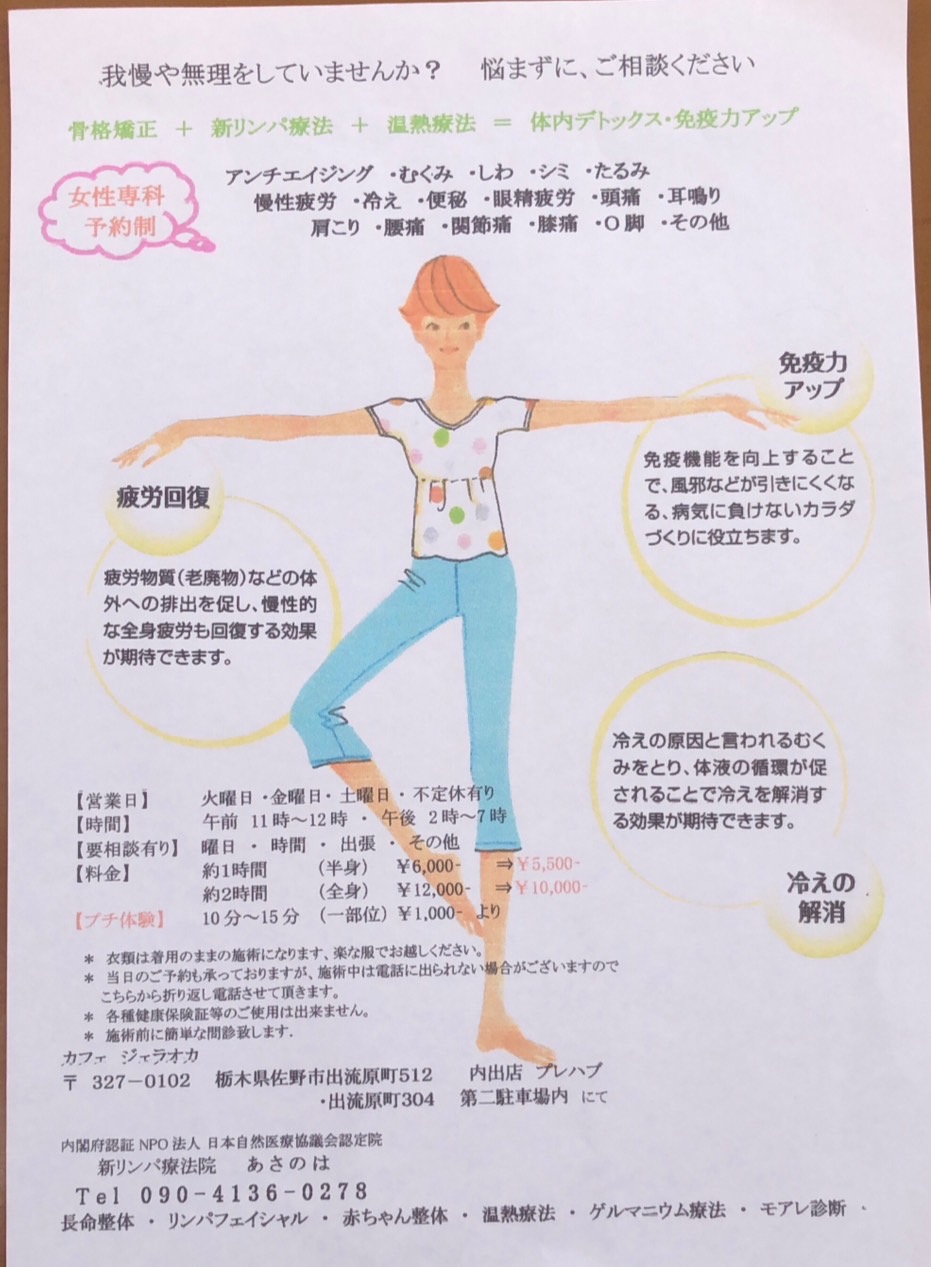 我慢や無理をしていませんか？　悩まずに、ご相談ください
骨格矯正　＋　新リンパ療法　＋　温熱療法　＝　体内デトックス・免疫力アップ
女性専科
予約制
アンチエイジング　・むくみ　・しわ　・シミ　・たるみ
慢性疲労　・冷え　・便秘　・眼精疲労　・頭痛　・耳鳴り
肩こり　・腰痛　・関節痛　・膝痛　・O脚　・その他
免疫力
アップ
免疫機能を向上すること
で、風邪などが引きにくくな
る、病気に負けないカラダ
づくりに役立ちます。
疲労回復
疲労物質（老廃物）などの体
外への排出を促し、慢性的
な全身疲労も回復する効果
が期待できます。
冷えの原因と言われるむく
みをとり、体液の循環が促
されることで冷えを解消す
る効果が期待できます。
冷えの
解消
【営業日】　火曜日・金曜日・土曜日・不定休有り
【時間】　午前　11時～12時　・　午後　2時～7時
【要相談有り】　曜日　・　時間　・　出張　・　その他
【料金】　約1時間　（半身）　￥6,000-　⇒￥5,500-
約2時間　（全身）　￥12,000-　⇒￥10,000-
【プチ体験】　10分～15分　（一部位）￥1,000-　より
＊　衣類は着用のままの施術になります、楽な服でお越しください。
＊　当日のご予約も承っておりますが、施術中は電話に出られない場合がございますので
こちらから折り返し電話させて頂きます。
＊　各種健康保険証等のご使用は出来ません。
＊　施術前に簡単な問診致します.
カフェ　ジェラオカ
〒　327－0102　栃木県佐野市出流原町512　内出店　プレハブ
・出流原町304　第二駐車場内　にて
内閣府認証 NPO法人 日本自然医療協議会認定院
新リンパ療法院　あさのは
Tel　090-4136-0278
長命整体　・　リンパフェイシャル　・　赤ちゃん整体　・　温熱療法　・　ゲルマニウム療法　・　モアレ診断